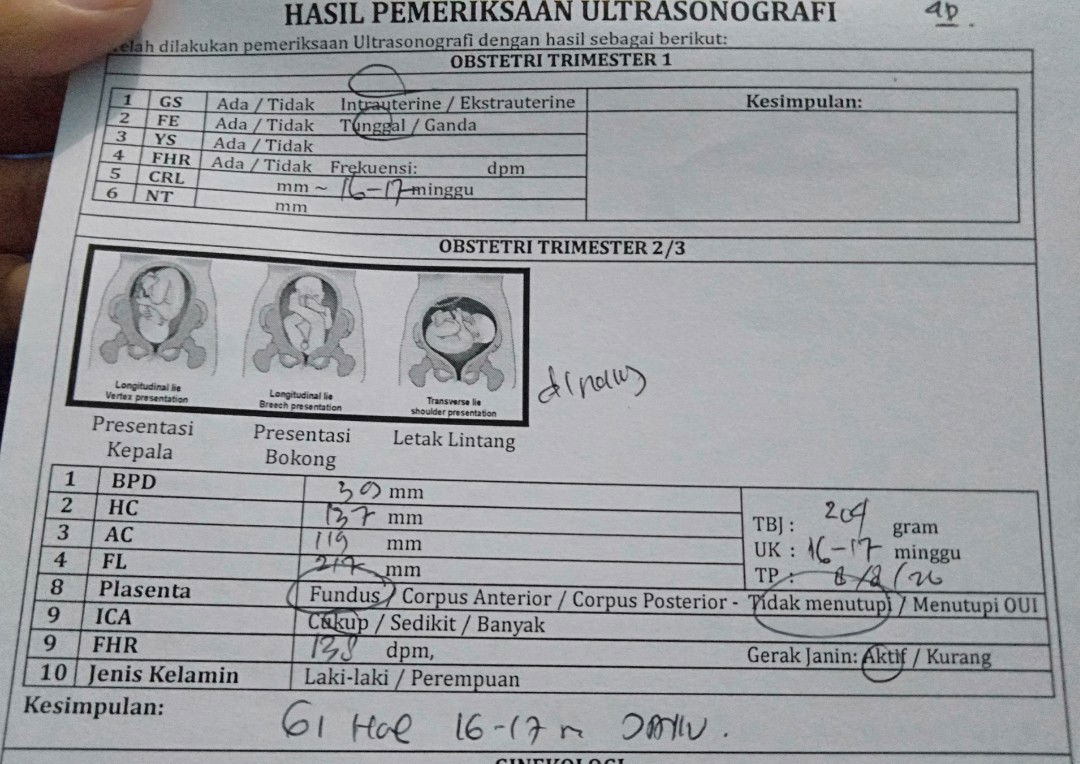 HASIL PEMERIKSAAN ULTRASONOGRAFI
elah dilakukan pemeriksaan Ultrasonografi dengan hasil sebagai berikut:
OBSTETRI TRIMESTER 1
1 GS Ada / Tidak Intrauterine / Ekstrauterine Kesimpulan:
2 FE Ada / Tidak Tunggal / Ganda
3 YS Ada / Tidak
4 FHR Ada / Tidak Frekuensi: dpm
5 CRL mm ~ 16-17 minggu
6 NT mm
OBSTETRI TRIMESTER 2/3
Longitudinal lie
Vertex presentation
Longitudinal lie
Breech presentation
Transverse lie
shoulder presentation
Presentasi
Kepala
Presentasi
Bokong
Letak Lintang
1 BPD mm
2 HC 137 mm
3 AC 119 mm
4 FL 217 mm
TBJ : 204 gram
UK : 16-17 minggu
TP : 8/8/26
8 Plasenta Fundus / Corpus Anterior / Corpus Posterior - Tidak menutupi / Menutupi OUI
9 ICA Cukup / Sedikit / Banyak
9 FHR 138 dpm, Gerak Janin: Aktif / Kurang
10 Jenis Kelamin Laki-laki / Perempuan
Kesimpulan:
G1 16-17
GINEKOLOGI